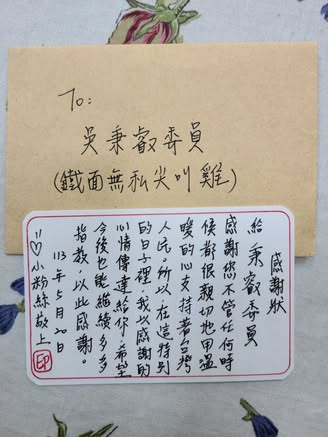 To:
吳秉叡委員
(鐵面無私尖叫雞)
感謝狀
給秉叡委員
感謝您不管任何時
候都很親切地用溫
暖的心支持著台灣
人民。所以,在這特別
的日子裡,我以感謝的
心情傳達給你,希望
今後也能繼續多多
指教,以此感謝。
113年5月20日
♡小粉絲敬上
印